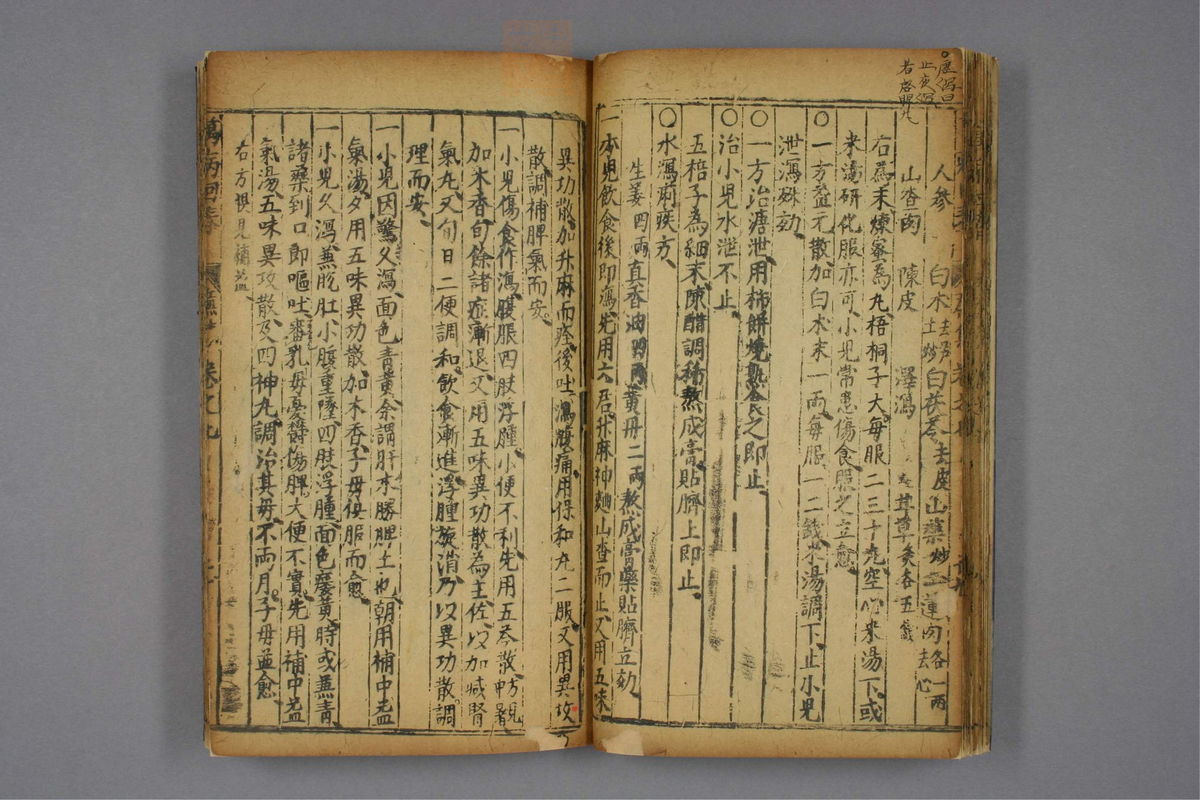 人參 白朮去芦土炒 白茯苓去皮 山藥炒 蓮肉各一兩去心
山查肉 陳皮 澤瀉 甘草炙各五錢
右為末煉蜜為丸梧桐子大每服二三十丸空心米湯下或
米湯研化服亦可小兒常患傷食服之立愈
○一方益元散加白朮末一兩每服一二錢米湯調下止小兒
泄瀉殊効
○一方治溏泄用柿餅燒熟食之即止
○治小兒水泄不止
五棓子為細末陳醋調稀熬成膏貼臍上即止
○水瀉痢疾方
生姜四兩 真香油四兩 黃丹二兩 熬成膏藥貼臍立効
一小兒飲食後即瀉先用六君升麻神麯山查而止又用五味
異功散加升麻而痊後吐瀉腹痛用保和丸二服又用異攻
散調補脾氣而安
一小兒傷食作瀉腹脹四肢浮腫小便不利先用五苓散
加木香旬餘諸症漸退又用五味異功散為主佐以加減腎
氣丸又旬日二便調和飲食漸進浮腫旋消乃以異功散調
理而安
一小兒因驚久瀉面色青黃余謂肝木勝脾土也朝用補中益
氣湯夕用五味異功散加木香子母俱服而愈
一小兒久瀉兼脫肛小腹重墜四肢浮腫面色痿黃時或兼青
諸藥到口即嘔吐審乳母憂鬱傷脾大便不實先用補中益
氣湯五味異攻散及四神丸調治其母不兩月子母並愈
右方俱見補益
萬病回春